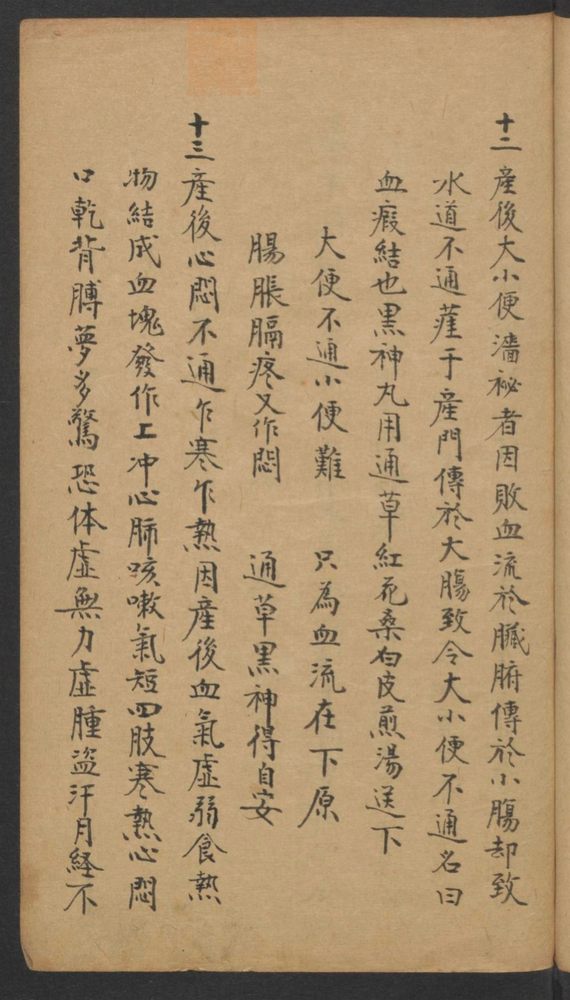 十二產後大小便濇祕者因敗血流於臟腑傳於小腸却致
水道不通薩于產門傳於大腸致令大小便不通名曰
血瘕結也黑神丸用通草紅花桑白皮煎湯送下
大便不通小便難　只為血流在下原
腸脹膈疼又作悶　通草黑神得自安
十三產後心悶不通乍寒乍熱因產後血氣虛弱食熱
物結成血塊發作上冲心肺咳嗽氣短四肢寒熱心悶
口乾背膊夢多驚恐体虛無力虛腫盜汗月経不